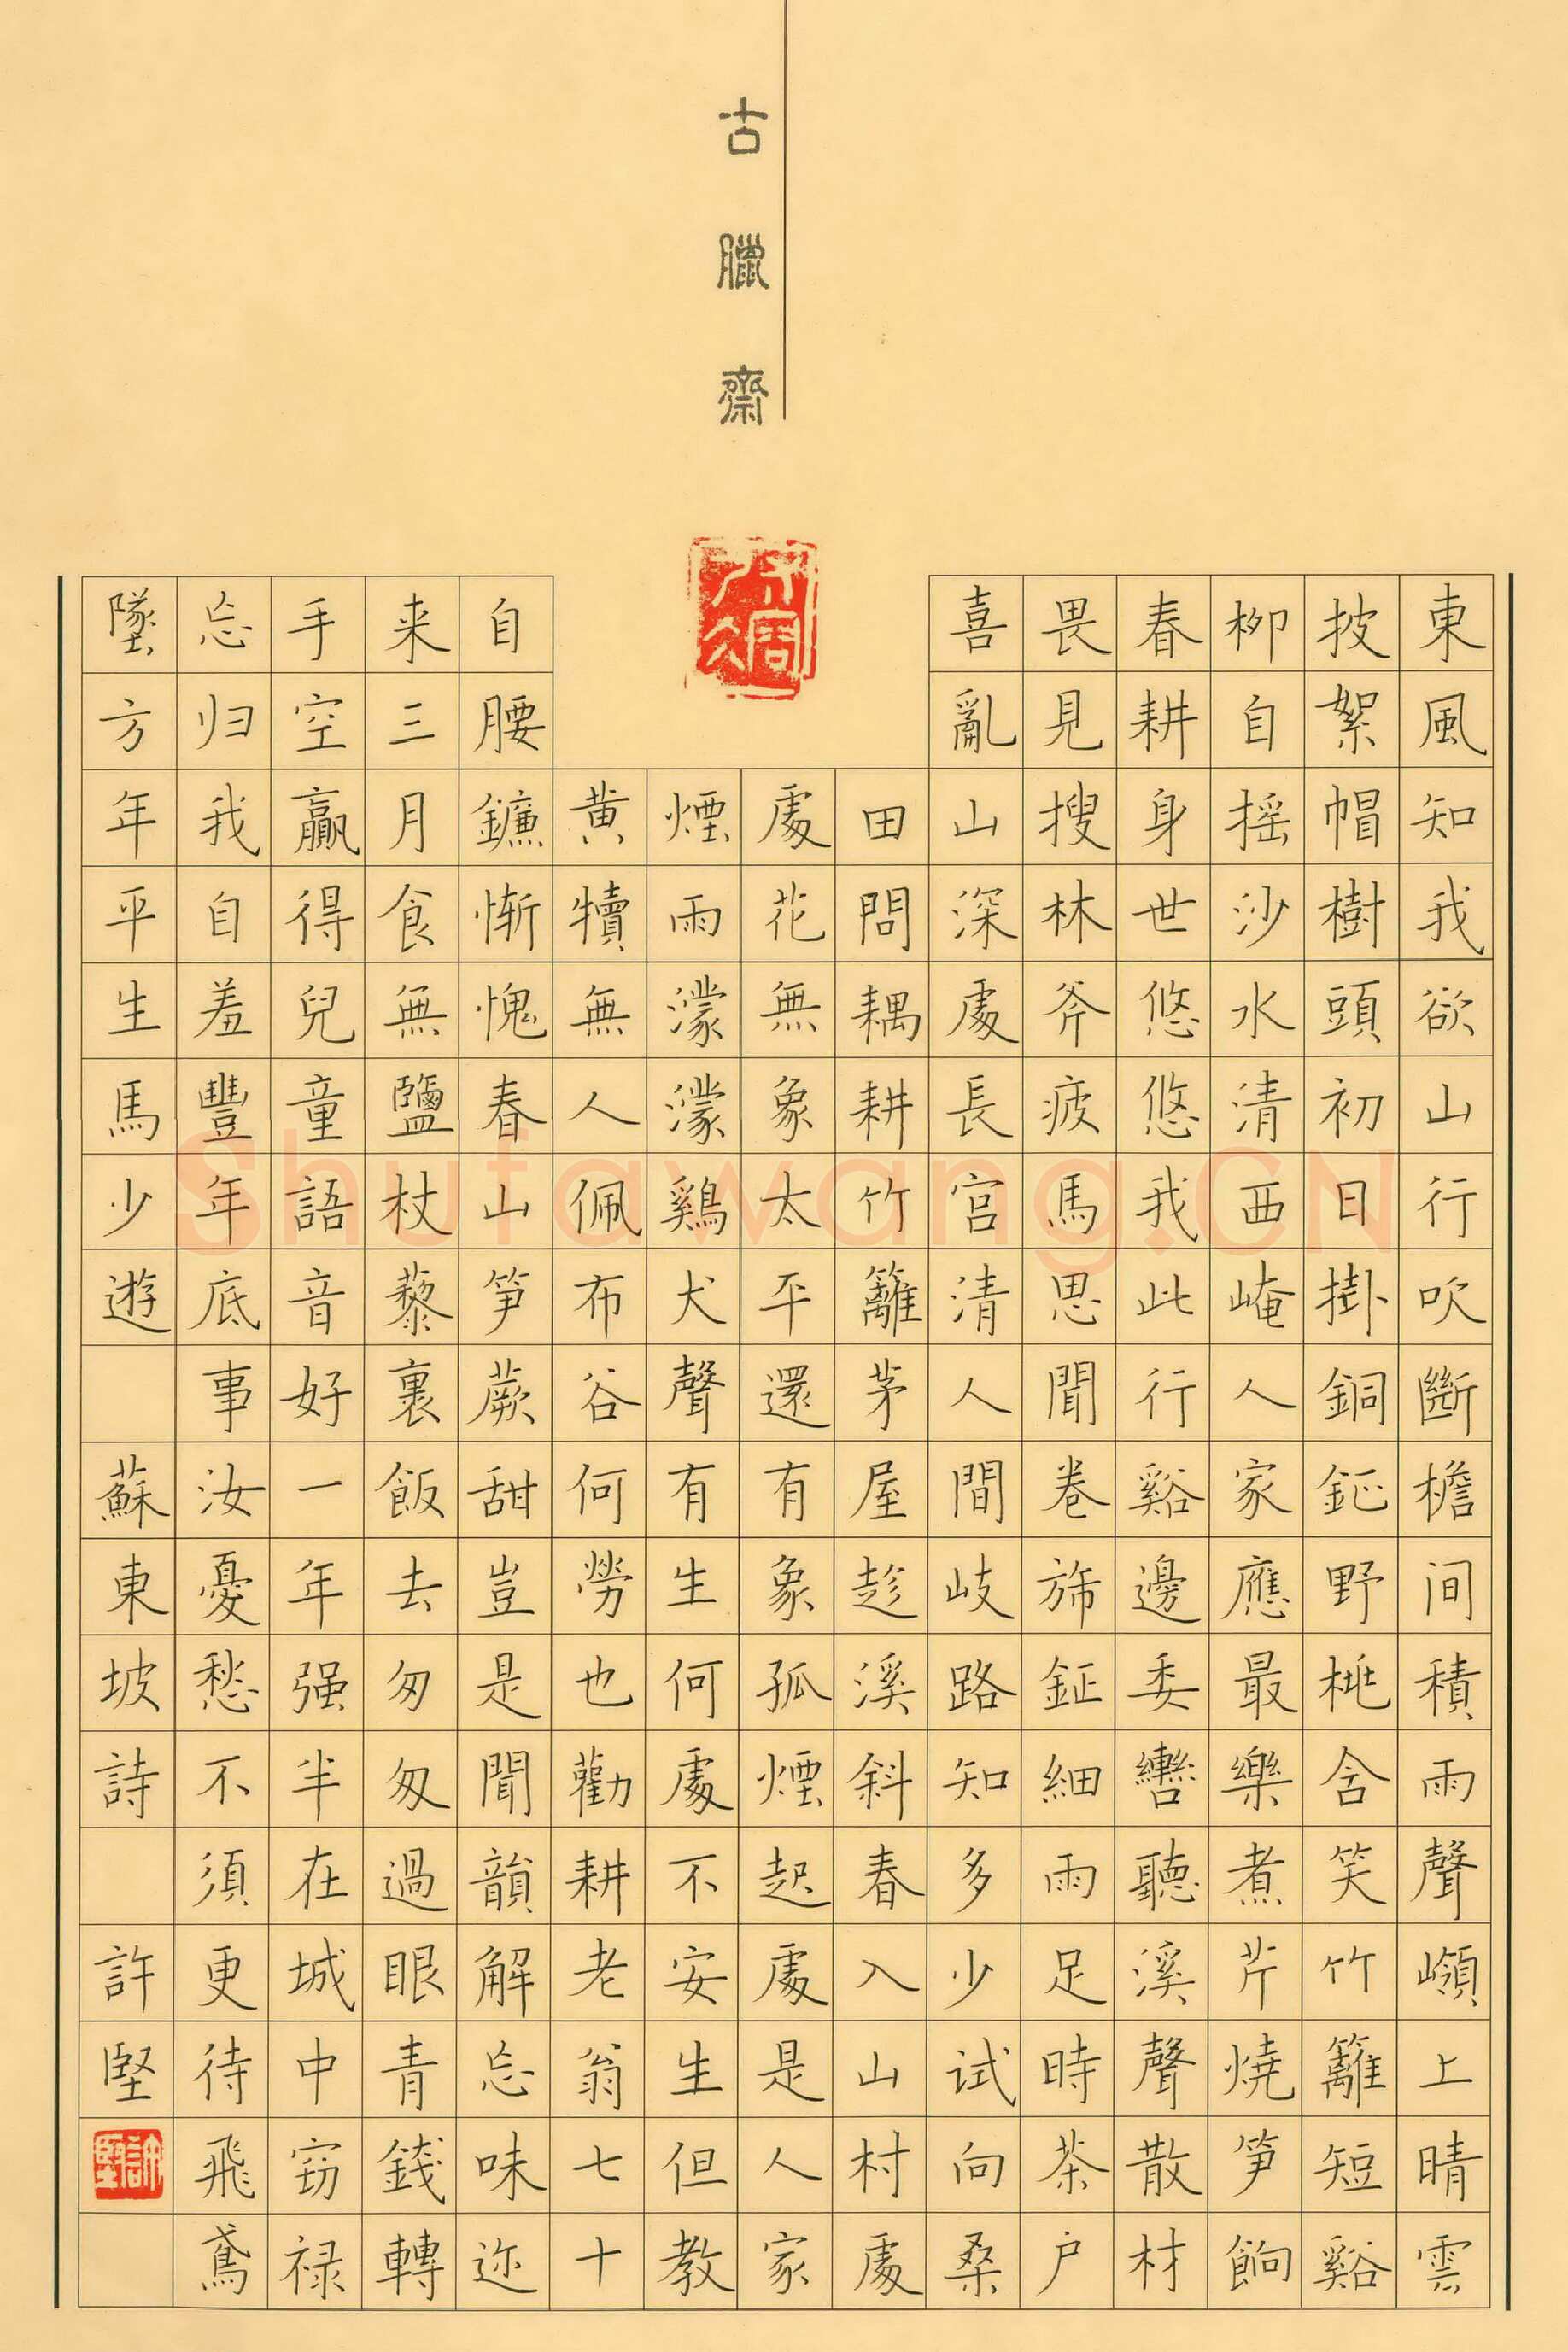 古臘齋
東風知我欲山行吹斷檐间積雨聲嶺上晴雲
披絮帽樹頭初日掛銅鉦野桃含笑竹籬短谿
柳自摇沙水清西崦人家應最樂煮芹燒笋餉
春耕身世悠悠我此行谿邊委轡聽溪聲散材
畏見搜林斧疲馬思聞卷旆鉦細雨足時茶户
喜亂山深處長宫清人間岐路知多少试向桑
田問耦耕竹籬茅屋趁溪斜春入山村處
處花無象太平還有象孤煙起處是人家
煙雨濛濛鷄犬聲有生何處不安生但教
黄犢無人佩布谷何勞也勸耕老翁七十
自腰鐮慚愧春山笋蕨甜豈是聞韻解忘味迩
来三月食無鹽杖藜裹飯去匆匆過眼青錢轉
手空贏得兒童語音好一年强半在城中窃禄
忘归我自羞豐年底事汝憂愁不須更待飛鳶
墜方年平生馬少遊 蘇東坡詩 許堅
許堅
Shufawang.CN